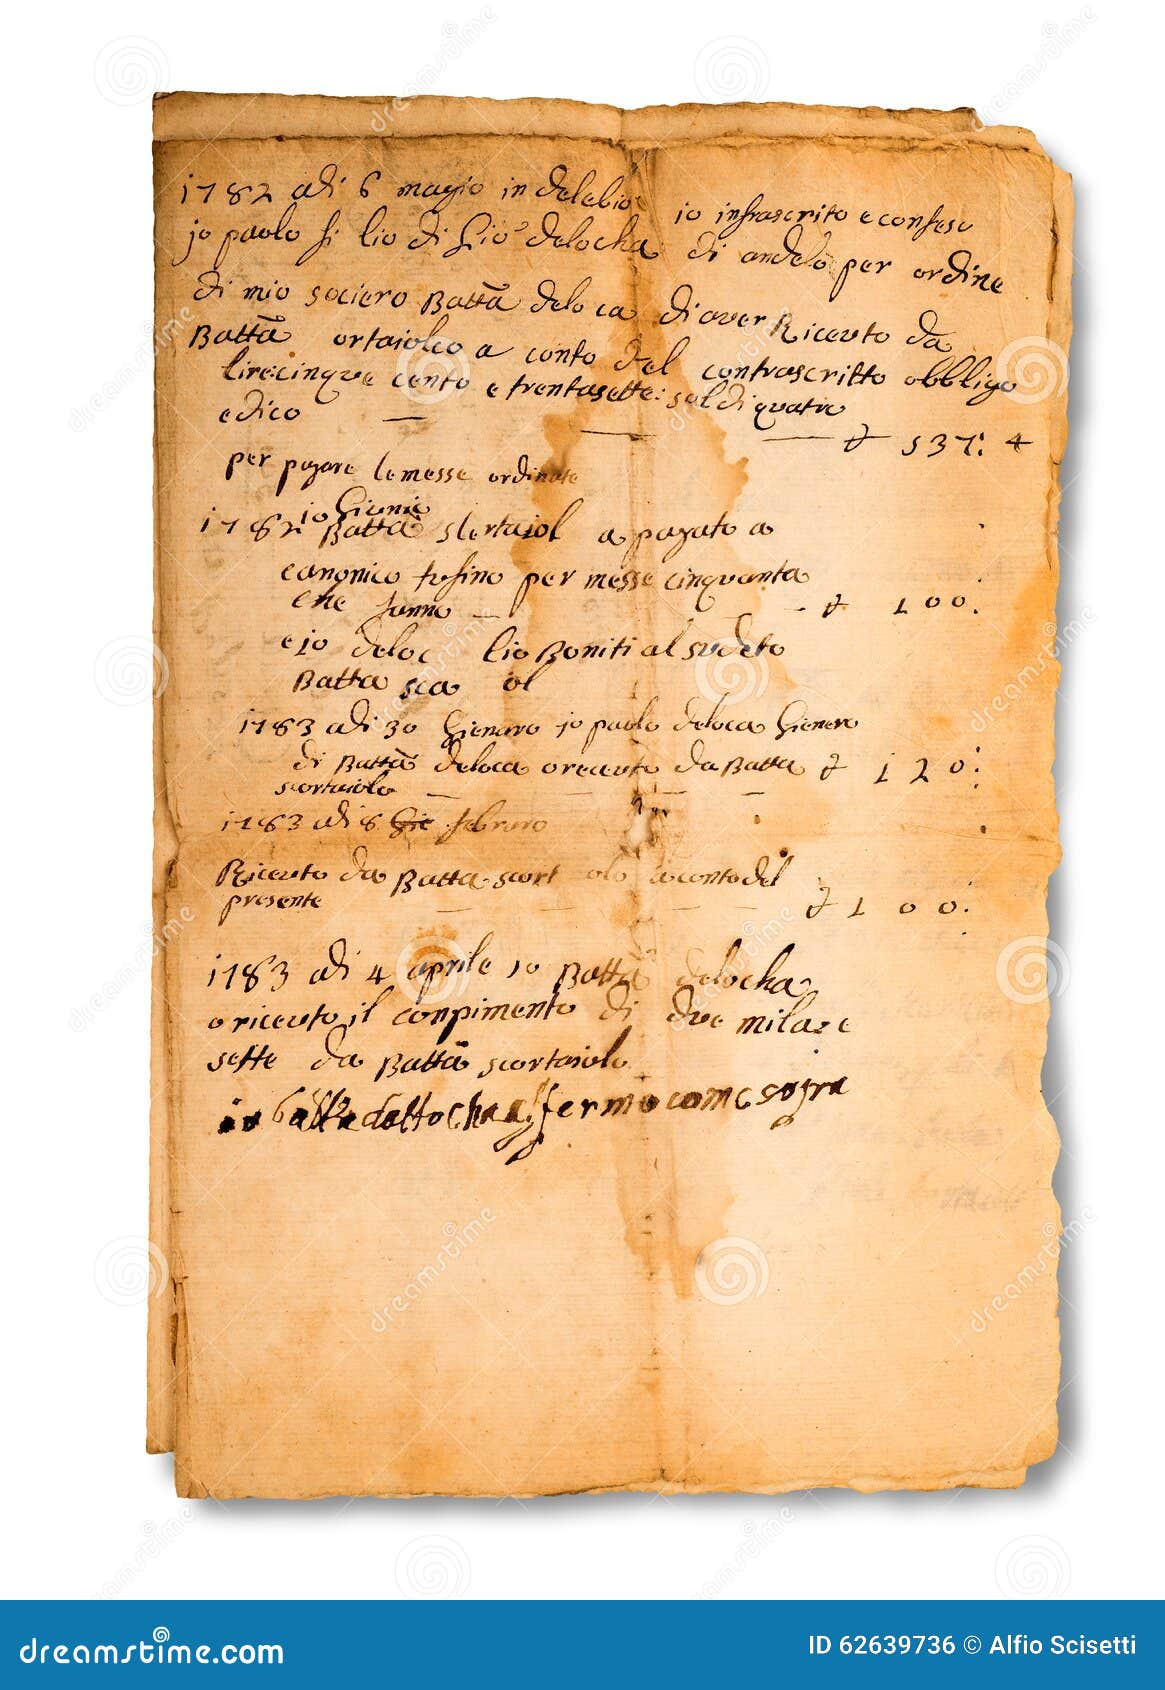 1782 adi 6 magio in delebio io infrascrito e confeso
jo paolo fi lio di Gio delocha di andelo per ordine
di mio sociero Battã deloca di aver Riceuto da
Battã ortaiolo a conto del contrascritto obbligo
lire: cinque cento e trentasette: soldi quatro
e dico — 537: 4
per pagare le messe ordinate
io Giunio
1782 Battã scortaiol a pagato a
canonico per messe cinquanta
che fanno — 100:
e io deloc al sudeto
Batta sca ol
1783 adi 30 Gienaro jo paolo deloca Gienero
di Battã deloca o receuto da Batta 120:
scortaiolo
1783 adi 8 febraro
Riceuto da Batta scort olo a conto del
presente 100:
1783 adi 4 aprile io Battã delocha
o riceuto il conpimento di due mila e
sette da Battã scortaiolo
io affermo come sopra
dreamstime
ID 62639736 © Alfio Scisetti